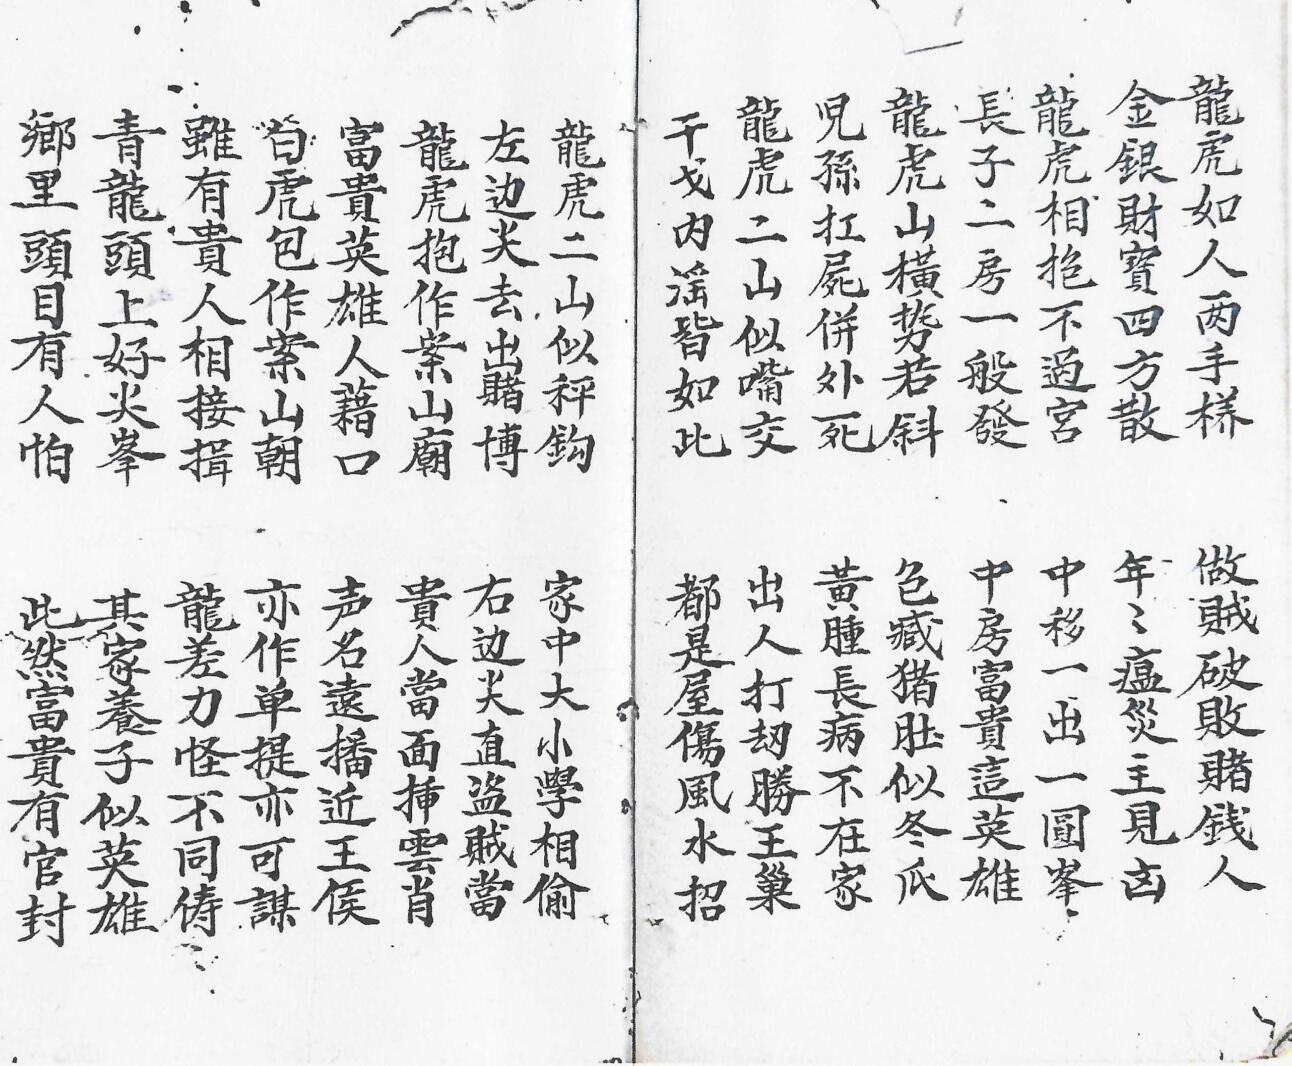 龍虎如人两手様 做賊破敗賭銭人
金銀財寳四方散 年〻瘟災主見凶
龍虎相抱不過宮 中移一出一圓峯
長子二房一般發 中房富貴這英雄
龍虎山横势若斜 色臧猪肚似冬瓜
児孫扛屍併外死 黄腫長病不在家
龍虎二山似嘴交 出人打刼勝王巢
干戈内滛皆如此 都是屋傷風水招
龍虎二山似秤鈎 家中大小學相偷
左边尖去出賭博 右边尖直盗賊當
龍虎抱作案山廟 貴人當面揷雲肖
富貴英雄人藉口 声名遠播近王侯
白虎包作案山朝 亦作单提亦可謀
雖有貴人相接揖 龍差力怪不同儔
青龍頭上好尖峯 其家養子似英雄
鄉里頭目有人怕 此然富貴有官封